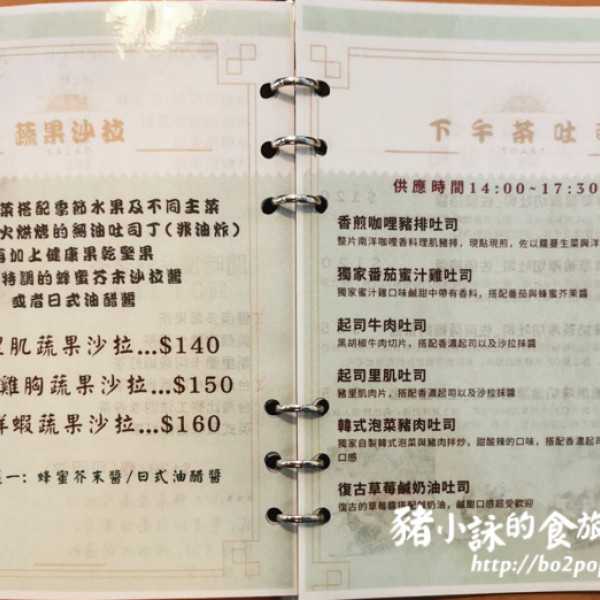 蔬果沙拉
菜搭配季節水果及不同主菜
火烘烤的無油吐司丁(非油炸)
再加上健康果乾堅果
特調的蜂蜜芥末沙拉醬
或者日式油醋醬
里肌蔬果沙拉...$140
雞胸蔬果沙拉...$150
鮮蝦蔬果沙拉...$160
一: 蜂蜜芥末醬/日式油醋醬
下午茶吐司
供應時間14:00~17:30
香煎咖哩豬排吐司
整片南洋咖哩香料理肌豬排，現點現煎，佐以蘿蔓生菜與洋
獨家番茄蜜汁雞吐司
獨家蜜汁雞口味鹹甜中帶有香料，搭配番茄與蜂蜜芥茉醬
起司牛肉吐司
黑胡椒牛肉切片，搭配香濃起司以及沙拉抹醬
起司里肌吐司
豬里肌肉片，搭配香濃起司以及沙拉抹醬
韓式泡菜豬肉吐司
獨家自製韓式泡菜與豬肉拌炒，甜酸辣的口味，搭配香濃起司
口感
復古草莓鹹奶油吐司
復古的草莓醬搭配鹹奶油，鹹甜口感超受歡迎
豬小詠的食旅
http://bo2pop